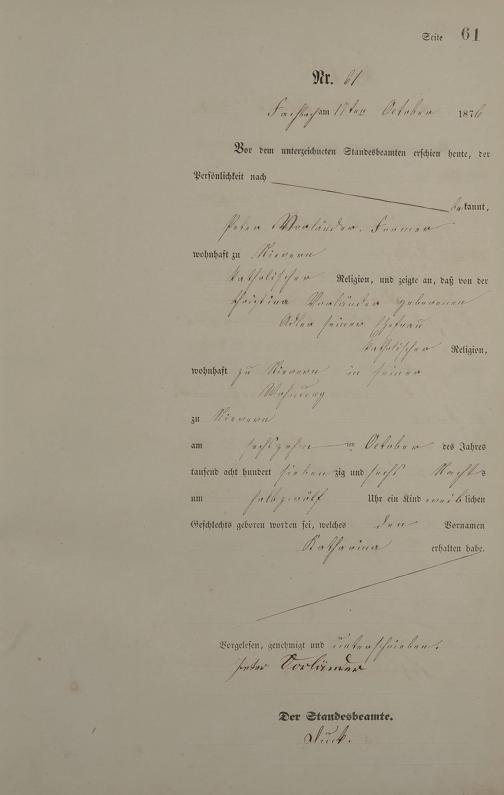 Seite 61
Nr. 61
Fachbach am 17ten October 1876
Vor dem unterzeichneten Standesbeamten erschien heute, der
Persönlichkeit nach
bekannt,
Peter Vorländer, Former
wohnhaft zu Nievern
katholischer Religion, und zeigte an, daß von der
Christina Vorländer geborenen
Adler seiner Ehefrau
katholischer Religion,
wohnhaft zu Nievern in seiner
Wohnung
zu Nievern
am sechszehnten October des Jahres
tausend acht hundert siebenzig und sechs Nachts
um halbzwölf Uhr ein Kind weiblichen
Geschlechts geboren worden sei, welches den Vornamen
Katharina erhalten habe.
Vorgelesen, genehmigt und unterschrieben.
Peter Vorländer
Der Standesbeamte.